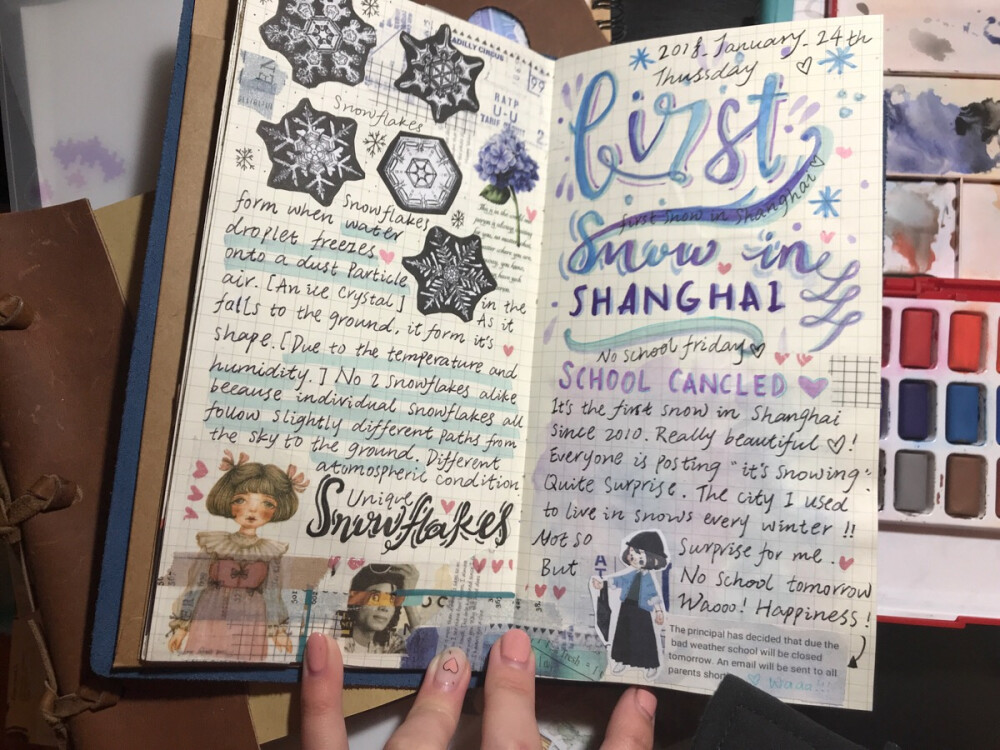 ADILLY CIRCUS
99
RATP
U-U
TARIF
2
Snowflakes
Snowflakes
form when water
droplet freezes
onto a dust Particle
air. [An ice crystal] in the
falls to the ground, it form it's As it
shape. [Due to the temperature and
humidity.] No 2 snowflakes alike
because individual snowflakes all
follow slightly different paths from
the sky to the ground. Different
atomospheric condition.
Unique
Snowflakes
2018. January. 24th
Thussday
First
first snow in Shanghai
Snow in
SHANGHAI
No school friday
SCHOOL CANCLED
It's the first snow in Shanghai
since 2010. Really beautiful !
Everyone is posting "it's snowing".
Quite surprise. The city I used
to live in snows every winter !!
Not so Surprise for me.
But No school tomorrow
Waooo! Happiness!
The principal has decided that due the
bad weather school will be closed
tomorrow. An email will be sent to all
parents short
Waoo!!!